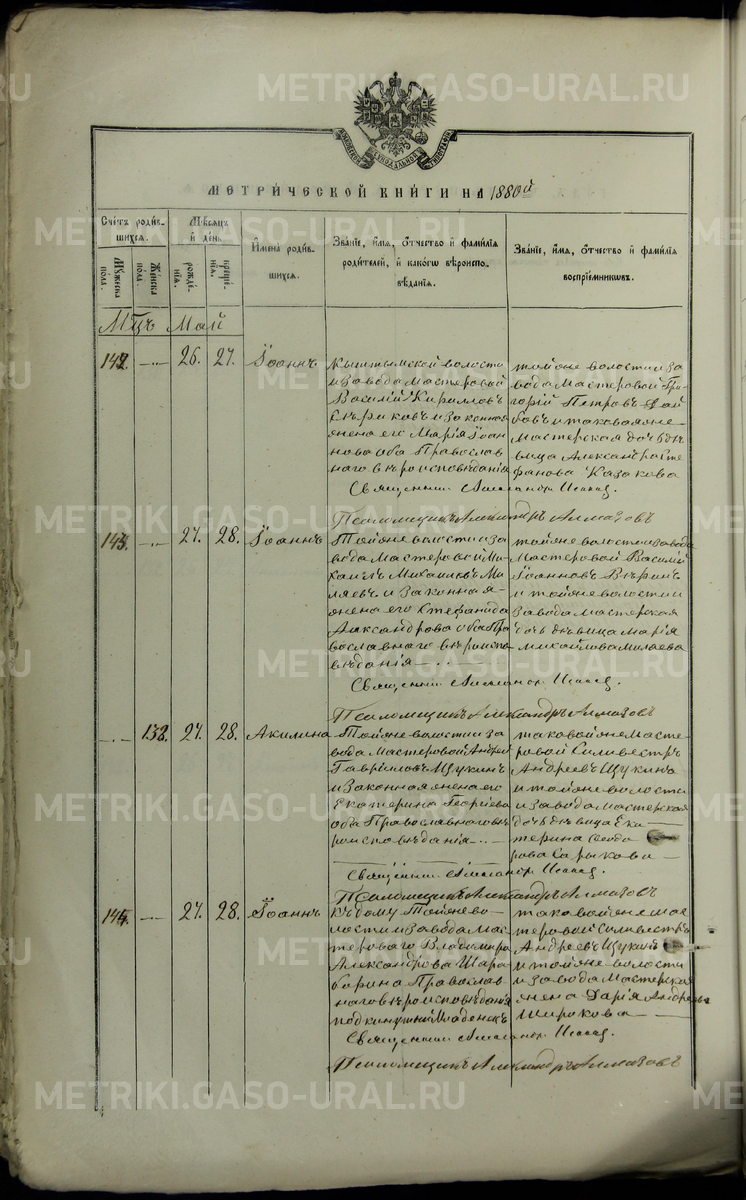 МЕТРИЧЕСКОЙ КНИГИ НА 1880й
Счетъ родившихся.
Мужеска пола.
Женска пола.
Мѣсяцъ и день.
рожденія.
крещенія.
Имена родившихся.
Званіе, имя, отчество и фамилія родителей, и какогѡ вѣроисповѣданія.
Званіе, имя, отчество и фамилія воспріемникѡвъ.
Мцъ Май
142. — 26. 27. Іоаннъ
Кыштымской волости
и завода мастеровой
Василій Кирилловъ
и законная
жена его Марія Іоан
нова оба Православ
наго вѣроисповѣданія
тойже волости и за
вода мастеровой Гри-
горій Петровъ
бовъ и таковая же
мастерская дочь дѣ
вица Александра Сте
фанова Казакова
Священникъ
Псаломщикъ Александръ Алмазовъ
143. — 27. 28. Іоаннъ
Тойже волости и за
вода мастеровой Ми-
хаилъ Михаиловъ Ми
ляевъ и законная
жена его Стефанида
Александрова оба Пра
вославнаго вѣроиспо
вѣданія —
тойже волости и завода
мастеровой Василій
Іоанновъ
и тойже волости и
завода мастерская
дочь дѣвица Марія
Михайлова Миляева
Священникъ
Псаломщикъ Александръ Алмазовъ
— 132. 27. 28. Акилина
Тойже волости и за
вода мастеровой Андрей
Гавріиловъ Щукинъ
и законная жена его
Екатерина Георгіева
оба Православнаго вѣ
роисповѣданія —
таковой же масте-
ровой Силивестръ
Андреевъ Щукинъ
и тойже волости
и завода мастерская
дочь дѣвица Ека—
терина Ѳеодо
рова Сарыкова —
Священникъ
Псаломщикъ Александръ Алмазовъ
144. — 27. 28. Іоаннъ
Къ дому Тойже во-
лости и завода мас-
тероваго Владиміра
Александрова Шара-
борина Православ
наго вѣроисповѣданія
подкинутый младенецъ
таковой же мас
теровой Силивестръ
Андреевъ Щукинъ
и тойже волости
и завода мастерская
жена Дарія Андреева
Широкова —
Священникъ
Псаломщикъ Александръ Алмазовъ
METRIKI.GASO-URAL.RU